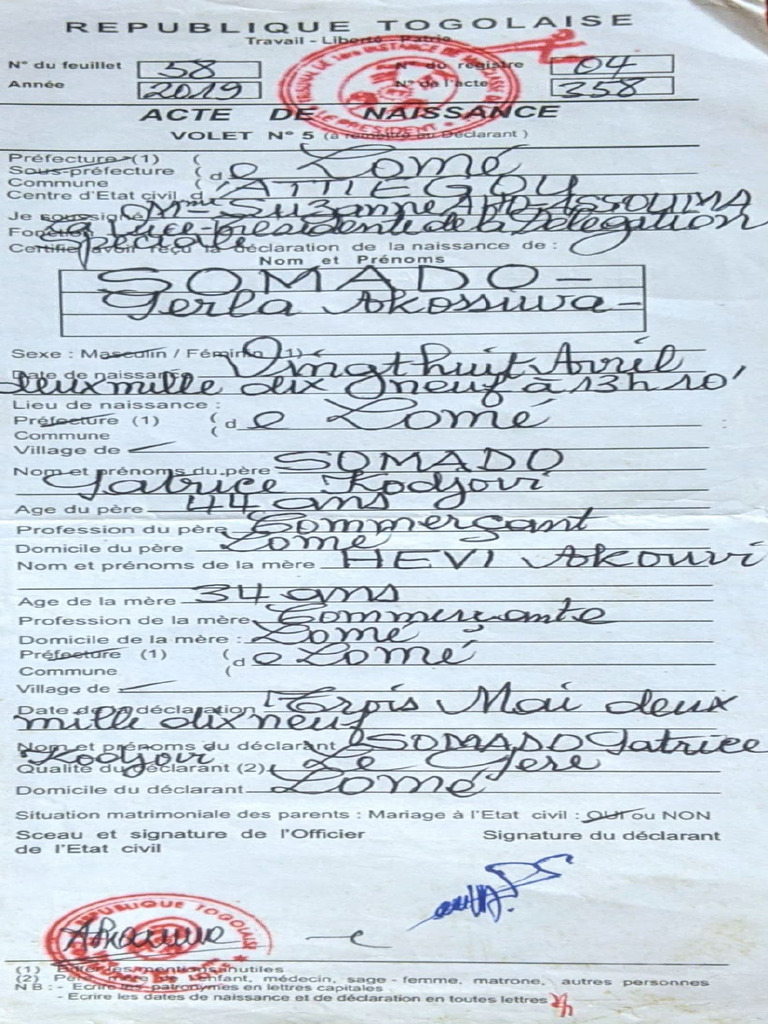 REPUBLIQUE TOGOLAISE
Travail - Liberté - Patrie
N° du feuillet 58 N° du registre 04
Année 2019 N° de l'acte 358
ACTE DE NAISSANCE
VOLET N° 5 (à remettre au Déclarant)
Préfecture (1)
Sous-préfecture ( de Lomé
Commune
Centre d'Etat civil d'ATTIEGOU
Je soussigné Mme Suzanne ASSOUMA
Fonction La Vice-présidente de la Délégation
Spéciale
Certifie avoir reçu la déclaration de la naissance de :
Nom et Prénoms
SOMADO =
Gerla Akossiwa -
Sexe : Masculin / Féminin (1)
Date de naissance Vingt huit Avril
deux mille dix neuf à 13h 10'
Lieu de naissance :
Préfecture (1) ( de Lomé
Commune (
Village de
Nom et prénoms du père SOMADO
Fatrice Kodjovi
Age du père 44 ans
Profession du père Commerçant
Domicile du père Lomé
Nom et prénoms de la mère HEVI Akouvi
Age de la mère 34 ans
Profession de la mère Commerçante
Domicile de la mère : Lomé
Préfecture (1) ( de Lomé
Commune (
Village de
Date de la déclaration Trois Mai deux
mille dix neuf
Nom et prénoms du déclarant SOMADO Fatrice
Kodjovi
Qualité du déclarant (2) Le Père
Domicile du déclarant Lomé
Situation matrimoniale des parents : Mariage à l'Etat civil : OUI ou NON
Sceau et signature de l'Officier Signature du déclarant
de l'Etat civil
REPUBLIQUE TOGOLAISE
(1) les mentions inutiles
(2) Père, mère de l'enfant, médecin, sage - femme, matrone, autres personnes
NB : - Ecrire les patronymes en lettres capitales
- Ecrire les dates de naissance et de déclaration en toutes lettres